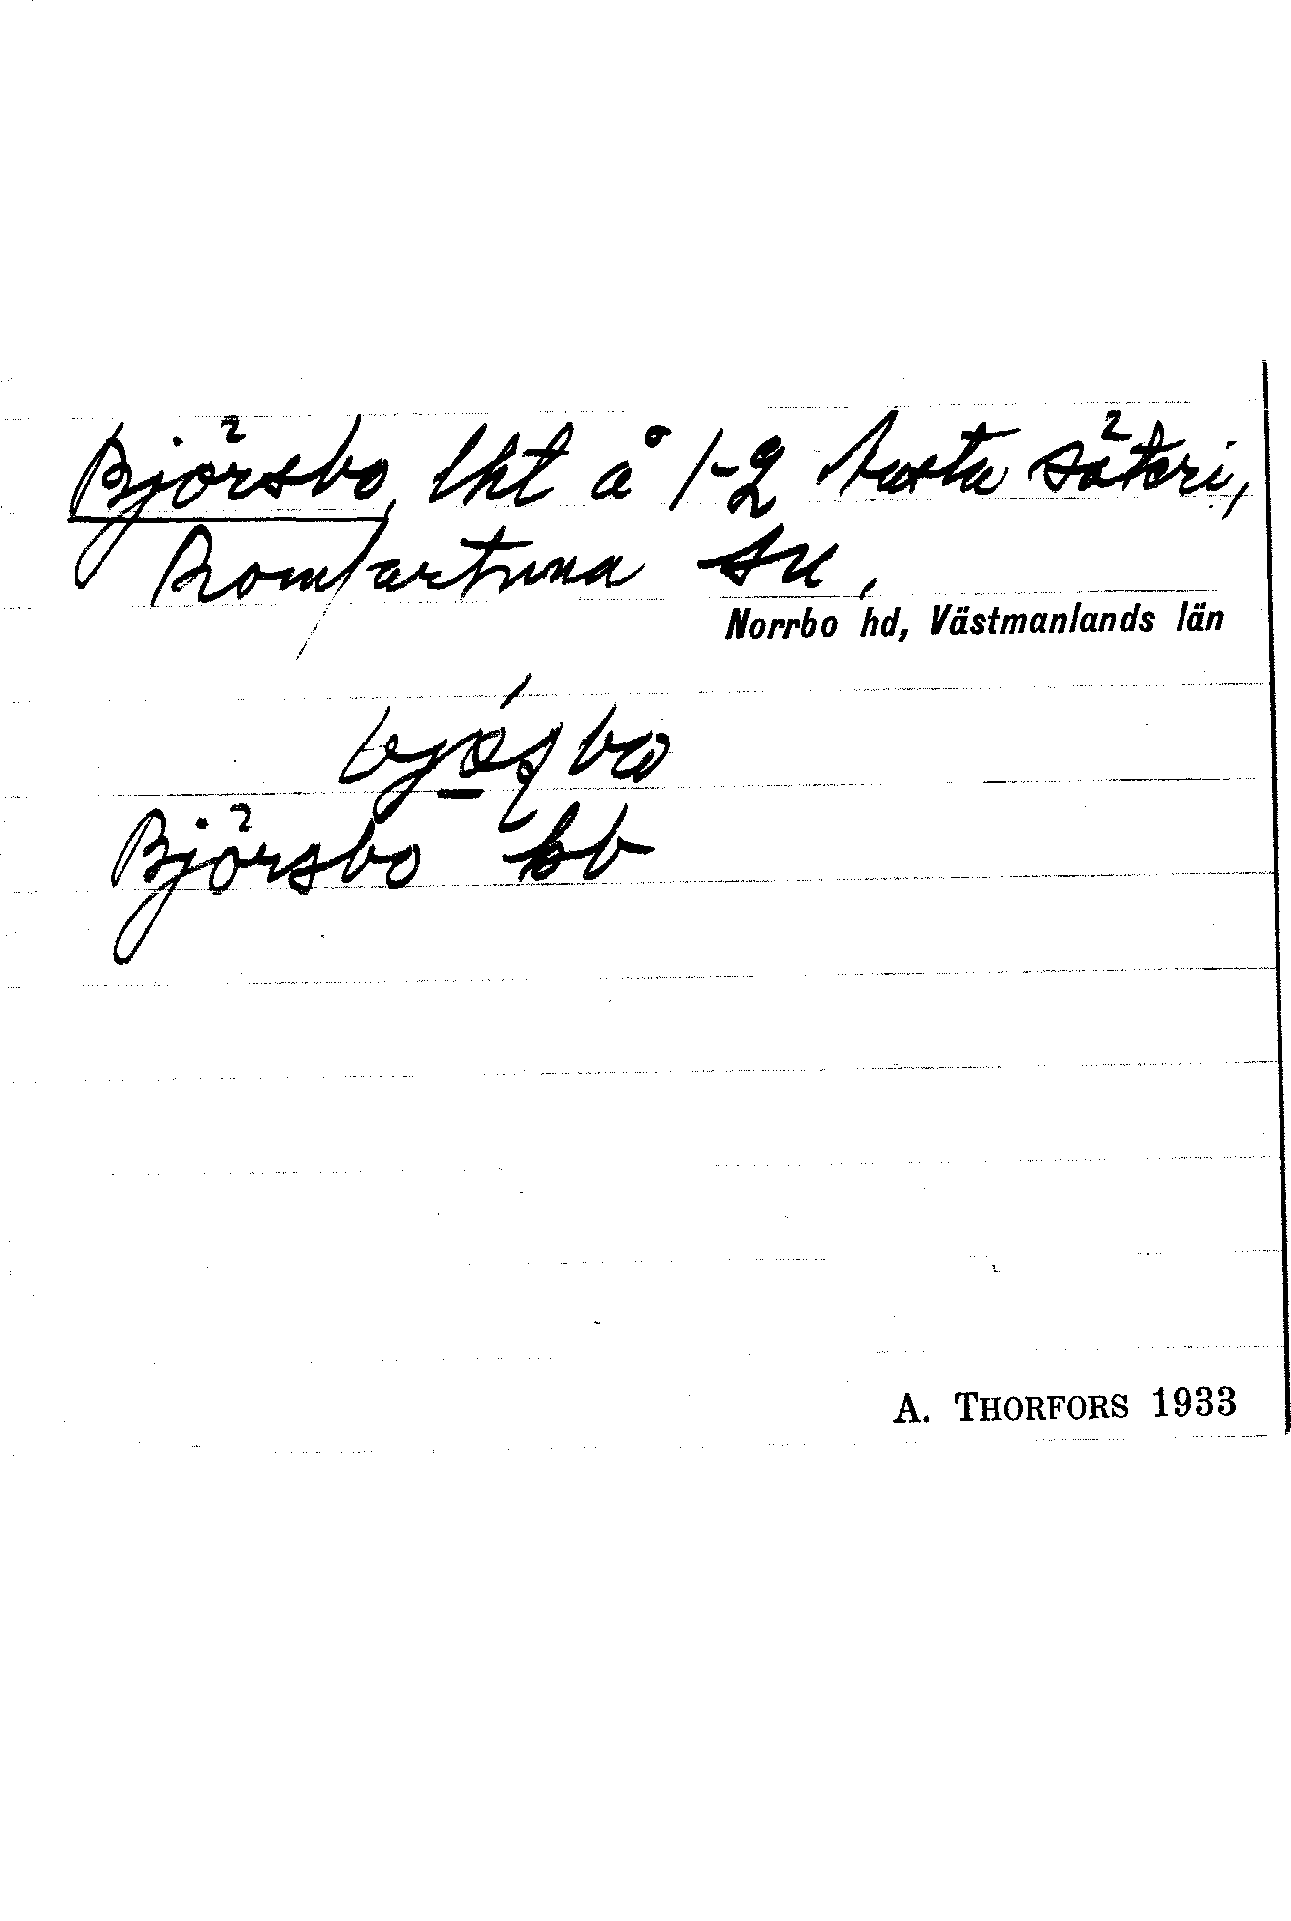 Björsbo, lht å 1-2 Åsta säteri,
Romfartuna sn,
Norrbo hd, Västmanlands län
Björsbo kb
A. THORFORS 1933